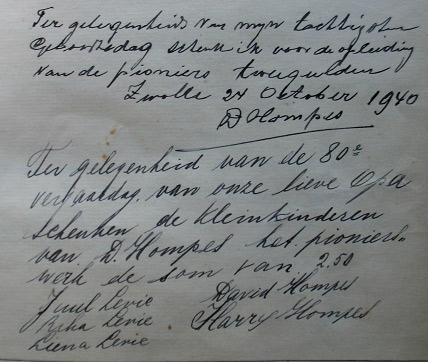 Ter gelegenheid van mijn tachtigsten
Geboortedag schenk ik voor de opleiding
van de pioniers twee gulden
Zwolle 24 October 1940
D Hompes
Ter gelegenheid van de 80e
verjaardag van onze lieve Opa
schenken de kleinkinderen
van D. Hompes het pioniers-
werk de som van 2.50
Juul Levie David Hompes
Levie Harry Hompes
Liena Levie